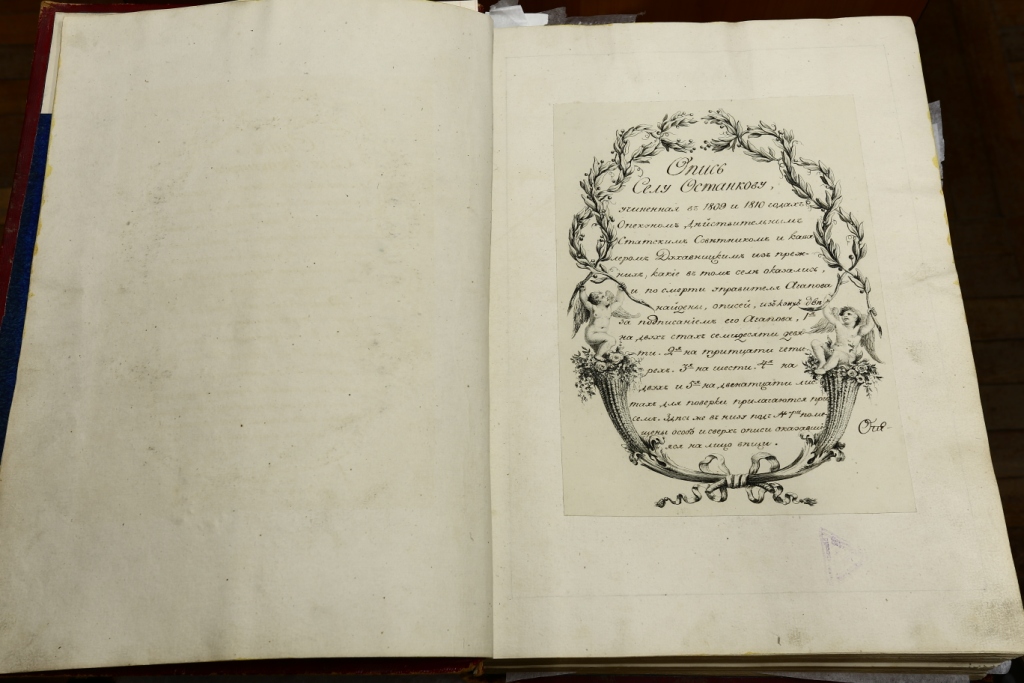 Опись
Селу Останкову,
учиненная въ 1809 и 1810 годахъ
Опекуномъ Дѣйствительнымъ
Статскимъ Совѣтникомъ и кава
леромъ изъ преж-
нихъ, какіе въ томъ селѣ оказались,
и по смерти управителя Агапова
найдены, описей, изъ коихъ двѣ
за подписаніемъ его Агапова, 1ѧ
на двухъ стахъ семидесяти девя-
ти. 2я на тритцати четы-
рехъ. 3я на шести. 4я на
двухъ и 5я на двенатцати лис-
тахъ для поверки прилагаются при
семъ. Здѣсь же въ низу подъ помѣ-
щены особо и сверхъ описи оказавші
яся на лицо вѣщи.